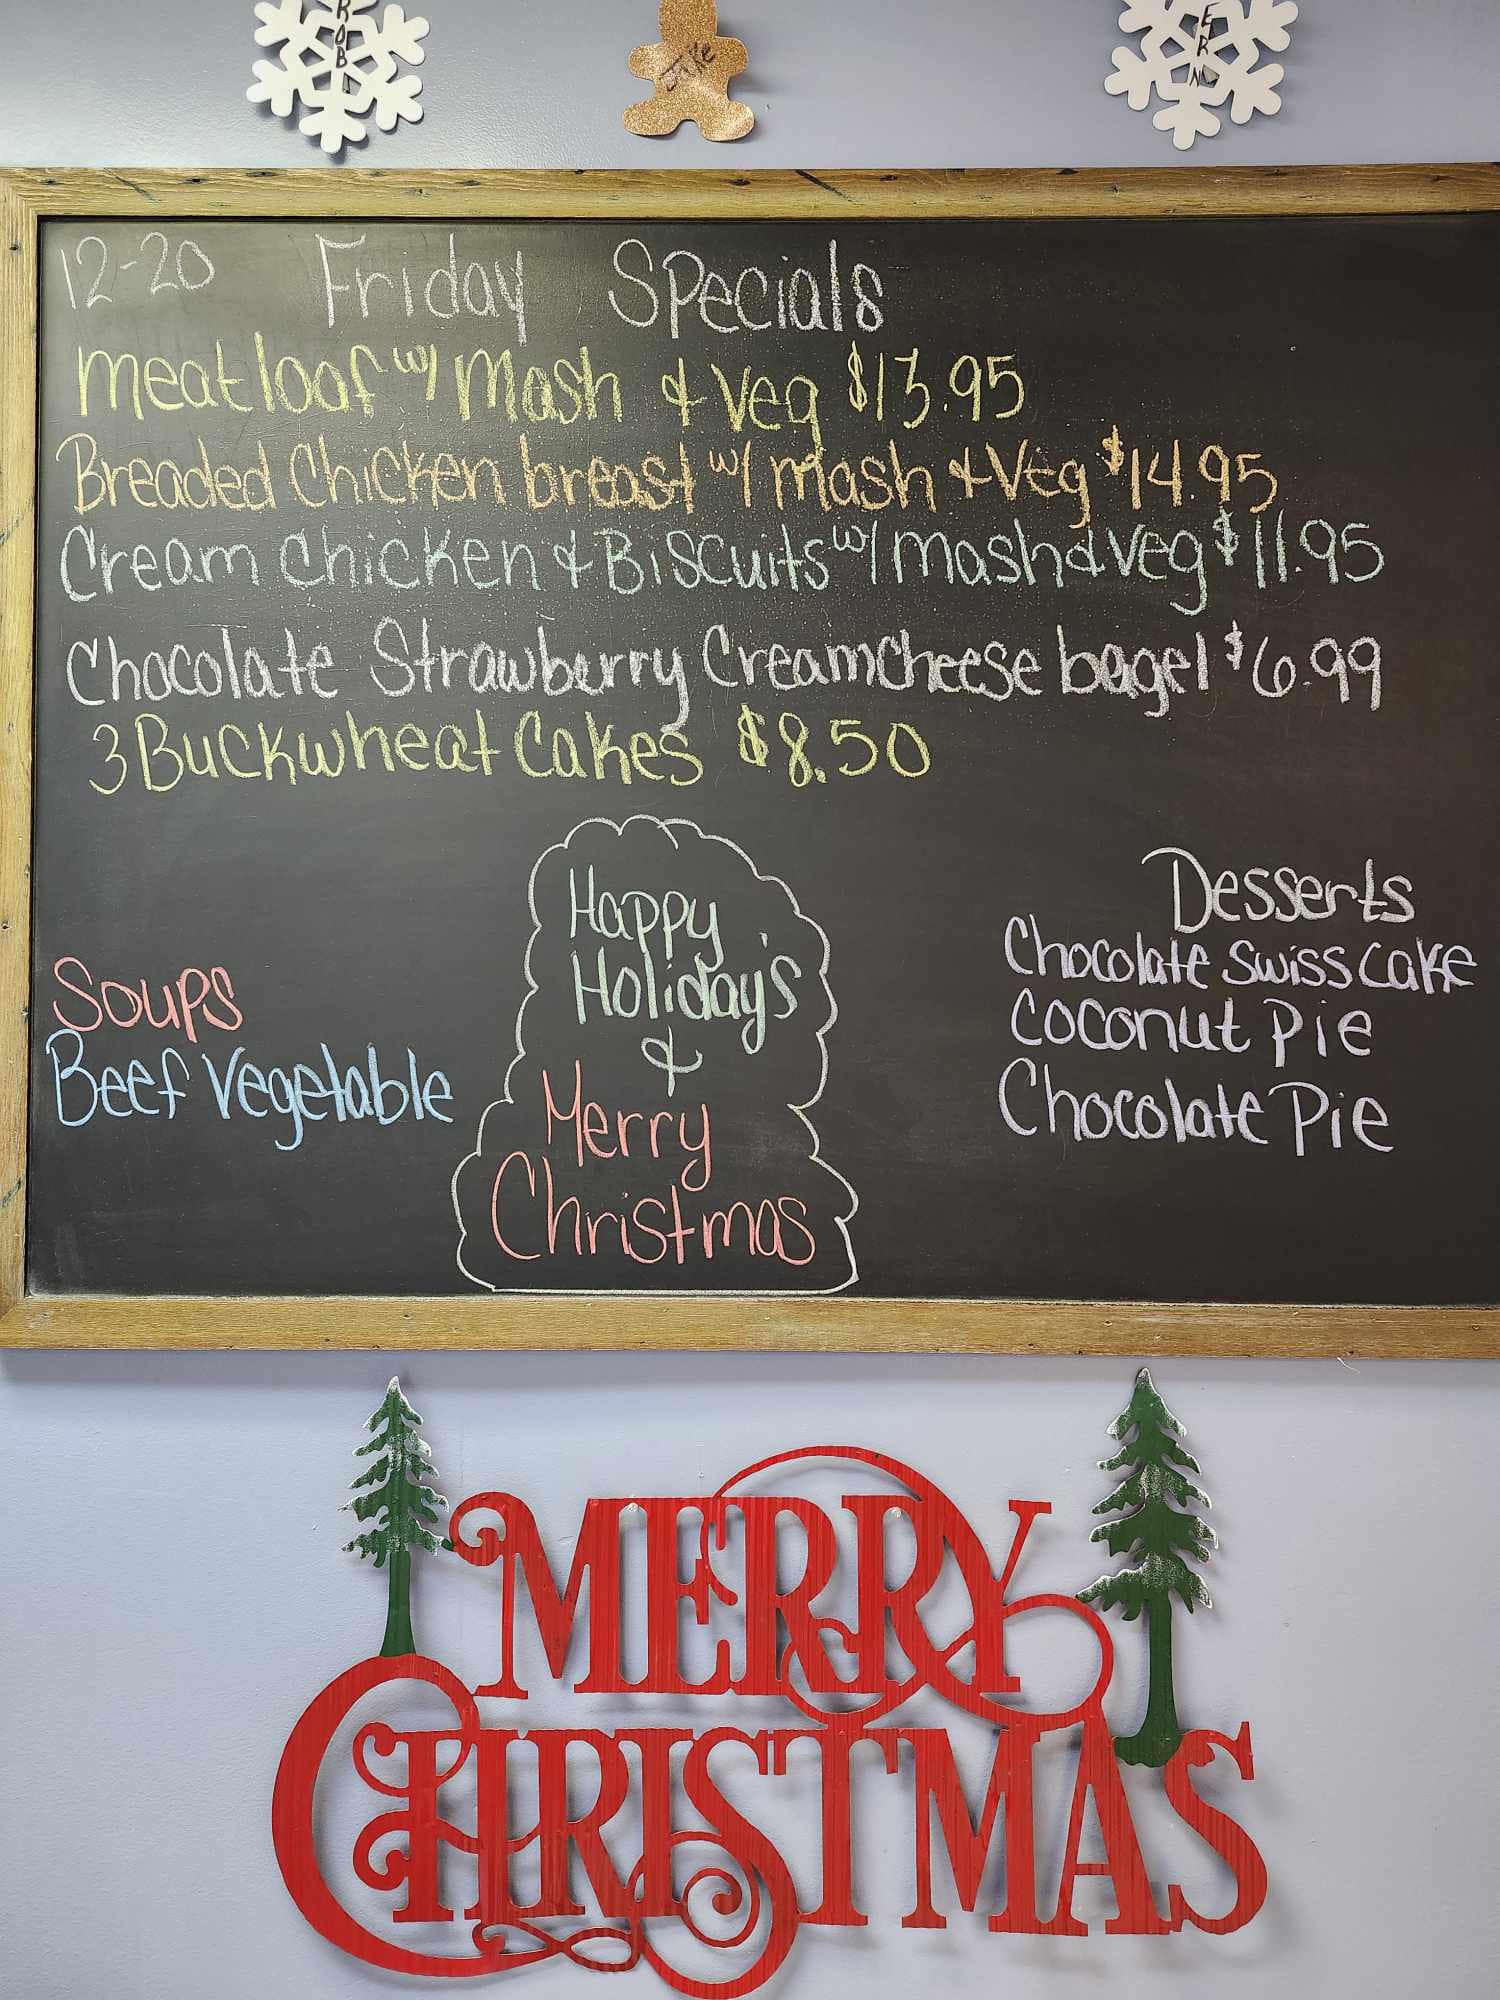 ROBI
Jake
ERN
12-20 Friday Specials
meatloaf w/ Mash & Veg $13.95
Breaded Chicken breast w/ mash & Veg $14.95
Cream Chicken & Biscuits w/ mash & Veg $11.95
Chocolate Strawberry Creamcheese bagel $6.99
3 Buckwheat Cakes $8.50
Happy
Holiday's
&
Merry
Christmas
Soups
Beef Vegetable
Desserts
Chocolate Swiss Cake
Coconut Pie
Chocolate Pie
MERRY
CHRISTMAS